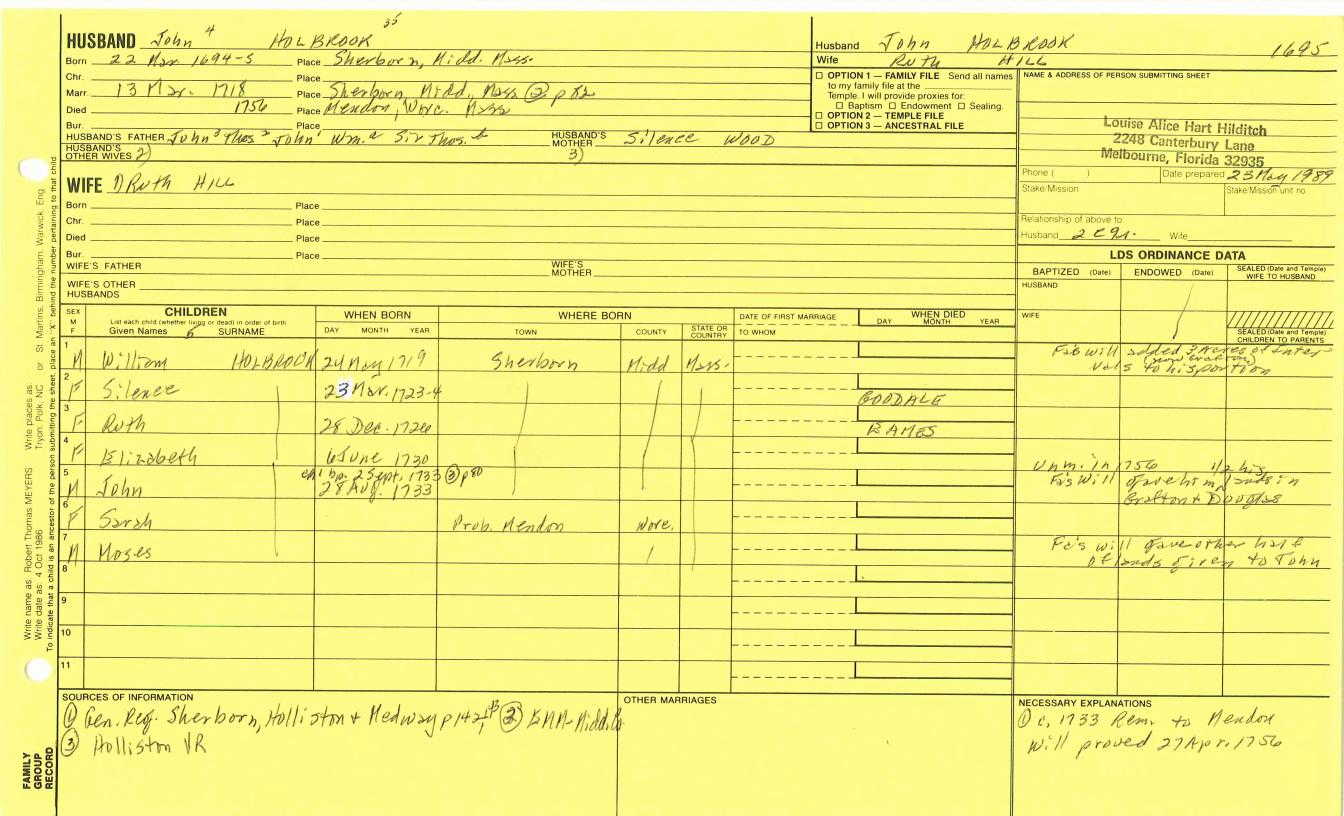 35
HUSBAND John 4 HOLBROOK
Born 22 Mar 1694-5 Place Sherborn, Midd. Mass.
Chr. Place
Marr. 13 Mar. 1718 Place Sherborn, Midd., Mass ② p 82
Died 1756 Place Mendon, Worc. Mass
Bur. Place
HUSBAND'S FATHER John³ Thos² John¹ Wm.ᵃ Sir Thos. HUSBAND'S MOTHER Silence WOOD
HUSBAND'S OTHER WIVES 2) 3)
Husband John HOLBROOK 1695
Wife Ruth HILL
OPTION 1 — FAMILY FILE Send all names
to my family file at the
Temple. I will provide proxies for:
Baptism Endowment Sealing.
OPTION 2 — TEMPLE FILE
OPTION 3 — ANCESTRAL FILE
NAME & ADDRESS OF PERSON SUBMITTING SHEET
Louise Alice Hart Hilditch
2248 Canterbury Lane
Melbourne, Florida 32935
Phone ( ) Date prepared 23 May 1989
Stake/Mission Stake/Mission unit no.
Relationship of above to:
Husband 2 c 9r. Wife
WIFE 1) Ruth HILL
Born Place
Chr. Place
Died Place
Bur. Place
WIFE'S FATHER WIFE'S MOTHER
WIFE'S OTHER HUSBANDS
LDS ORDINANCE DATA
BAPTIZED (Date) ENDOWED (Date) SEALED (Date and Temple) WIFE TO HUSBAND
HUSBAND
WIFE
SEALED (Date and Temple) CHILDREN TO PARENTS
SEX M F
CHILDREN
List each child (whether living or dead) in order of birth
Given Names SURNAME
WHEN BORN
DAY MONTH YEAR
WHERE BORN
TOWN COUNTY STATE OR COUNTRY
DATE OF FIRST MARRIAGE
TO WHOM
WHEN DIED
DAY MONTH YEAR
1 M William HOLBROOK 24 May 1719 Sherborn Midd Mass. Fa's will added 3 Acres of
Vals to his portion
2 F Silence 23 Mar. 1723-4 GOODALE
3 F Ruth 28 Dec. 1726 EAMES
4 F Elizabeth 6 June 1730 Unm. in 1756
5 M John bp. 2 Sept. 1733 ③ p80
28 Aug. 1733 Fa's Will gave him 1/2 his lands in
Grafton & Douglas
6 F Sarah Prob. Mendon Worc.
7 M Moses Fa's will gave other half
of lands given to John
8
9
10
11
SOURCES OF INFORMATION
① Gen. Reg. Sherborn, Holliston & Medway p 142 ②
③ Holliston VR
OTHER MARRIAGES
NECESSARY EXPLANATIONS
① c, 1733 Rem. to Mendon
Will proved 27 Apr. 1756
Write name as: Robert Thomas MEYERS Write places as: Tryon, Polk, NC or St. Martins, Birmingham, Warwick, Eng.
Write date as: 4 Oct 1986
To indicate that a child is an ancestor of the person submitting the sheet, place an "X" behind the number pertaining to that child
FAMILY GROUP RECORD